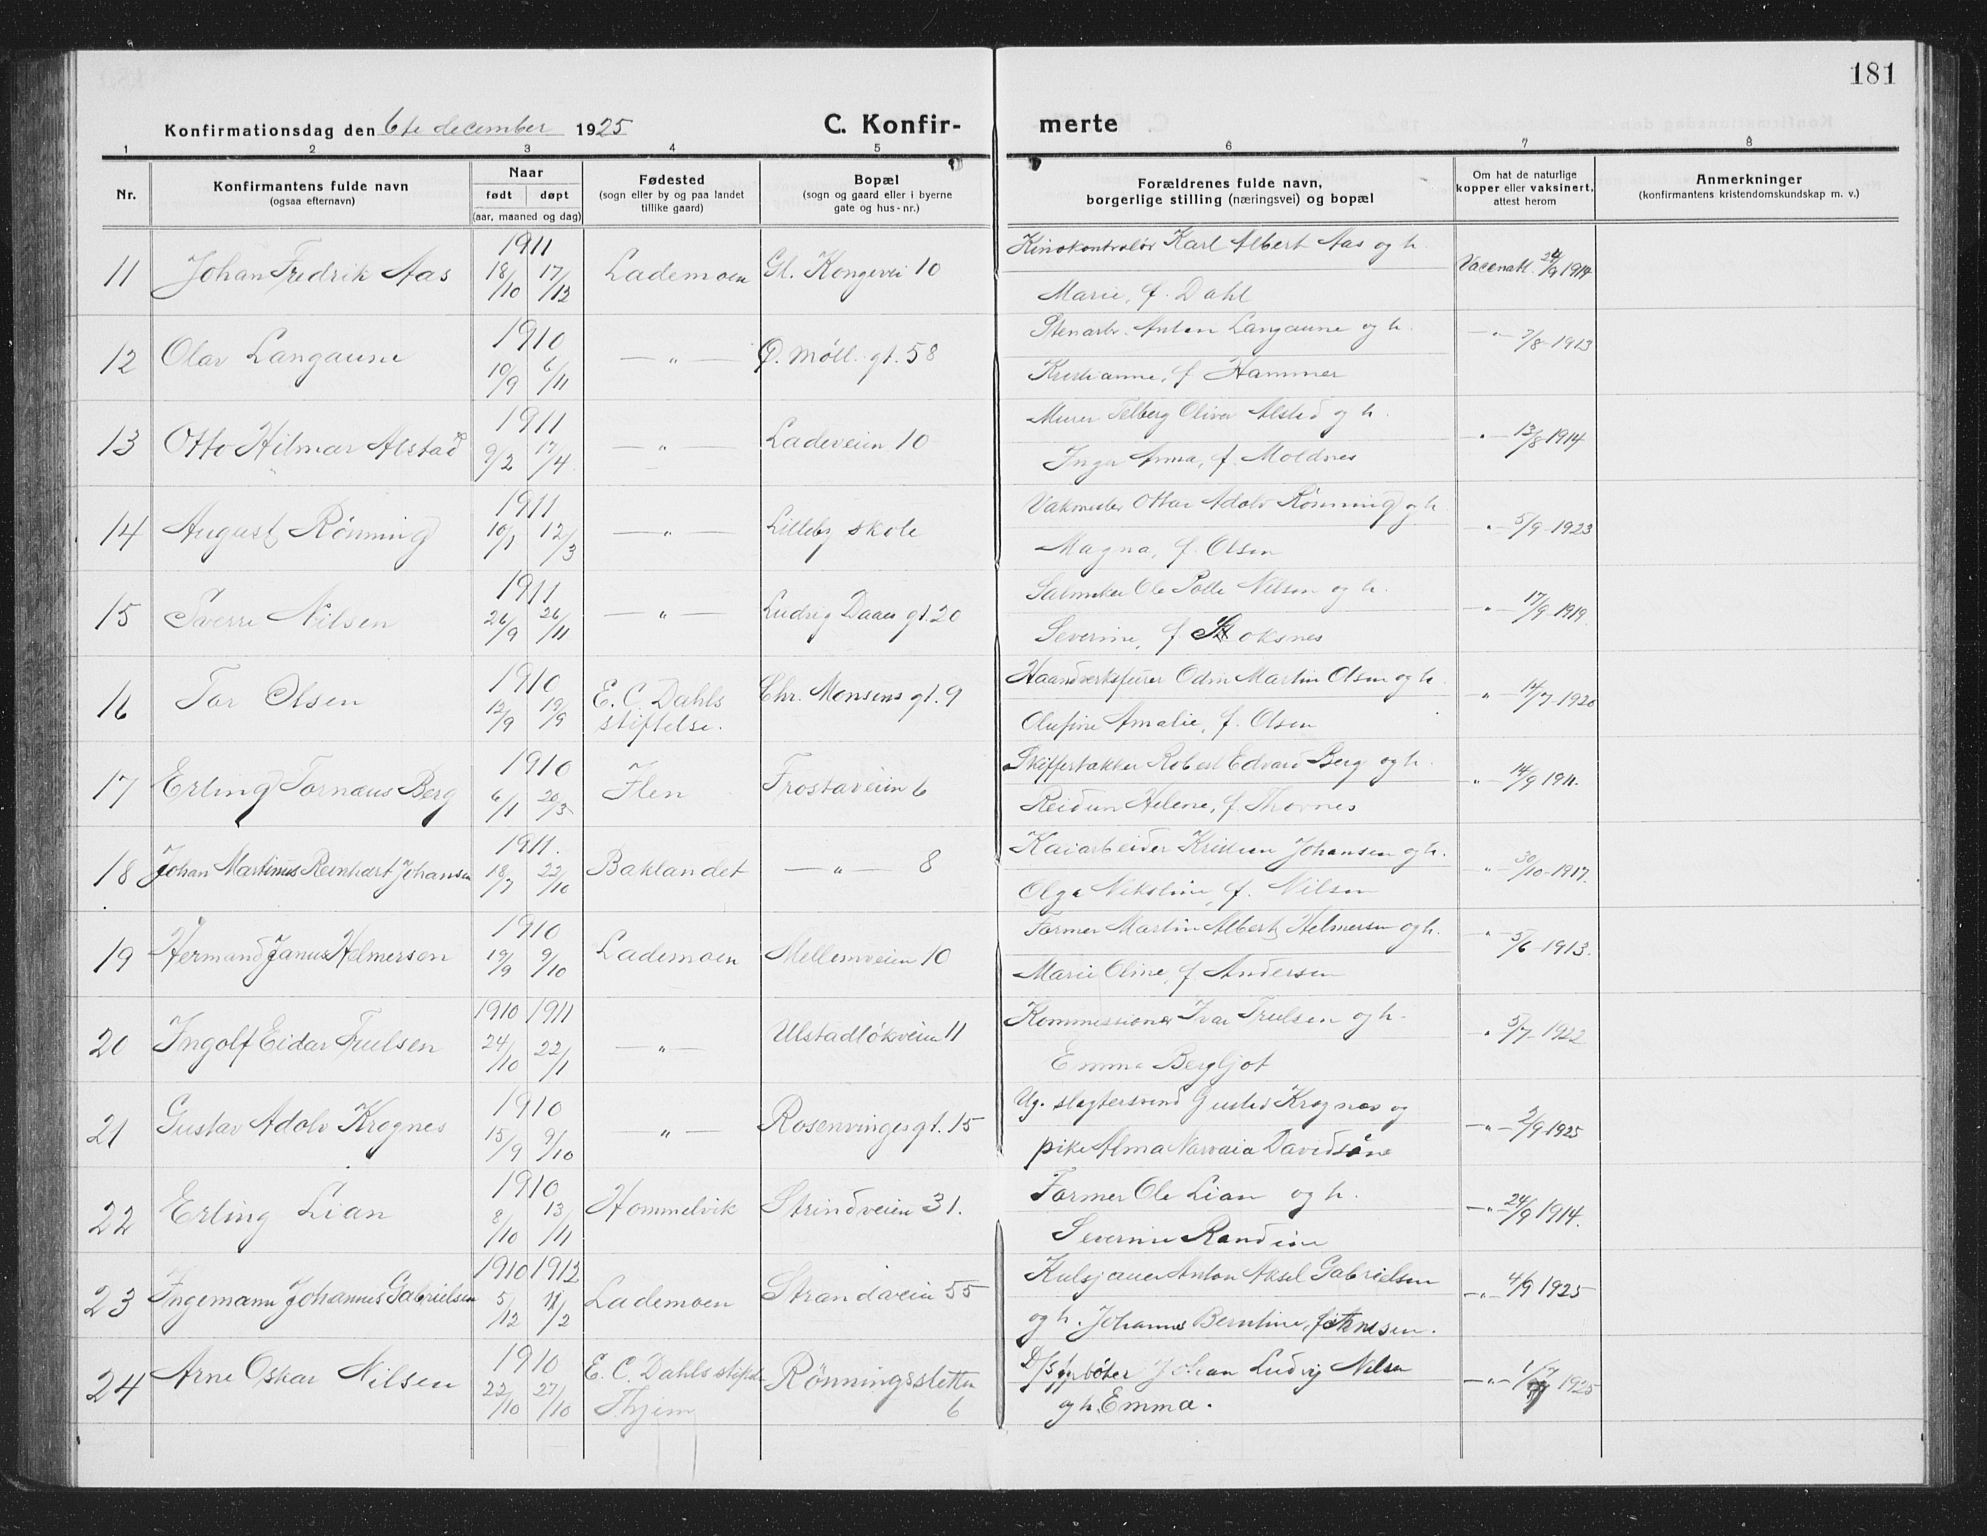 181
Konfirmationsdag den 6te december 1925 C. Konfir- merte
1 2 3 4 5 6 7 8
Nr.
Konfirmantens fulde navn
(ogsaa efternavn)
Naar
født døpt
(aar, maaned og dag)
Fødested
(sogn eller by og paa landet
tillike gaard)
Bopæl
(sogn og gaard eller i byerne
gate og hus-nr.)
Forældrenes fulde navn,
borgerlige stilling (næringsvei) og bopæl
Om hat de naturlige
kopper eller vaksinert,
attest herom
Anmerkninger
(konfirmantens kristendomskundskap m. v.)
1911 Kinokontrolør Karl Albert Aas og h.
11 Johan Fredrik Aas 18/10 17/12 Lademoen Gl. Kongevei 10 Vaccenatt. 24/9 1914
Marie, f. Dahl
1910 Stenarb. Anton Langaune og h.
12 Olav Langaune 10/9 6/11 — " — Ø. Møll. gt. 58 — " — 7/8-1913
Kristianne, f. Hammer
1911 Murer Telberg Oliver Alstad og h.
13 Otto Hilmar Alstad 9/2 17/4 — " — Ladeveien 10 " — 13/8-1914
Inga Anna, f. Moldnes
1911 Vakmester Ottar Adolv Rønning og h.
14 August Rønning 10/1 12/3 — " — Lilleby skole " — 5/9-1923
Magna, f. Olsen
1911 Ole Nilsen og h.
15 Sverre Nilsen 26/9 26/11 — " — Ludvig Daaes gt. 20 — " — 17/9-1919.
Severine, f. Stoksnes
1910 Odin Martin Olsen og h.
16 Tor Olsen 12/9 19/9 E. C. Dahls Chr. Monsens gt. 9 — " — 14/7-1920
stiftelse. Olufine Amalie, f. Olsen
1910 Skiffertækker Robert Edvard Berg og h.
17 Erling Tornæus Berg 6/1 20/3 Ilen Frostaveien 6 " — 14/9 1911.
Reidun Helene, f. Thornes
1911. Kaiarbeider Kristian Johansen og h.
18 Johan Martinus Reinhart Johansen 18/7 22/10 Baklandet — " — 8 — " — 30/10-1917.
Olga Nikoline, f. Nilsen
1910 Former Martin Albert Helmersen og h.
19 Hermund Janus Helmersen 19/9 9/10 Lademoen Mellemveien 10 — " — 5/6-1913.
Marie Oline, f. Andersen
1910 1911 Kommissionær Ivar Trulsen og h.
20 Ingolf Eidar Trulsen 24/10 22/1 — " — Ulstadløkveien 11 — " 5/7-1922
Emma Bergljot
1910 Ug. slagtersvend Gustav Krognes og
21 Gustav Adolv Krognes 15/9 9/10 — " — Rosenvinges gt. 15 — " — 2/9-1925
pike Alma Davidsen
1910 Former Ole Lian og h.
22 Erling Lian 8/10 13/11 Hommelvik Strindveien 31. — " 24/9 1914.
Severine Randine
1910 1912 Kulsjauer Anton Aksel Gabrielsen
23 Ingemann Johannes Gabrielsen 5/12 11/2 Lademoen Strandveien 55 — " — 4/9 1925
og h. Johanne Berntine, f. Arnesen.
1910 D/s fyrbøter Johan Ludvig Nilsen
24 Arne Oskar Nilsen 22/10 27/10 E. C. Dahls stiftelse Rønningsletten — " — 1/7 1925
Thjem 6 og h. Emma.